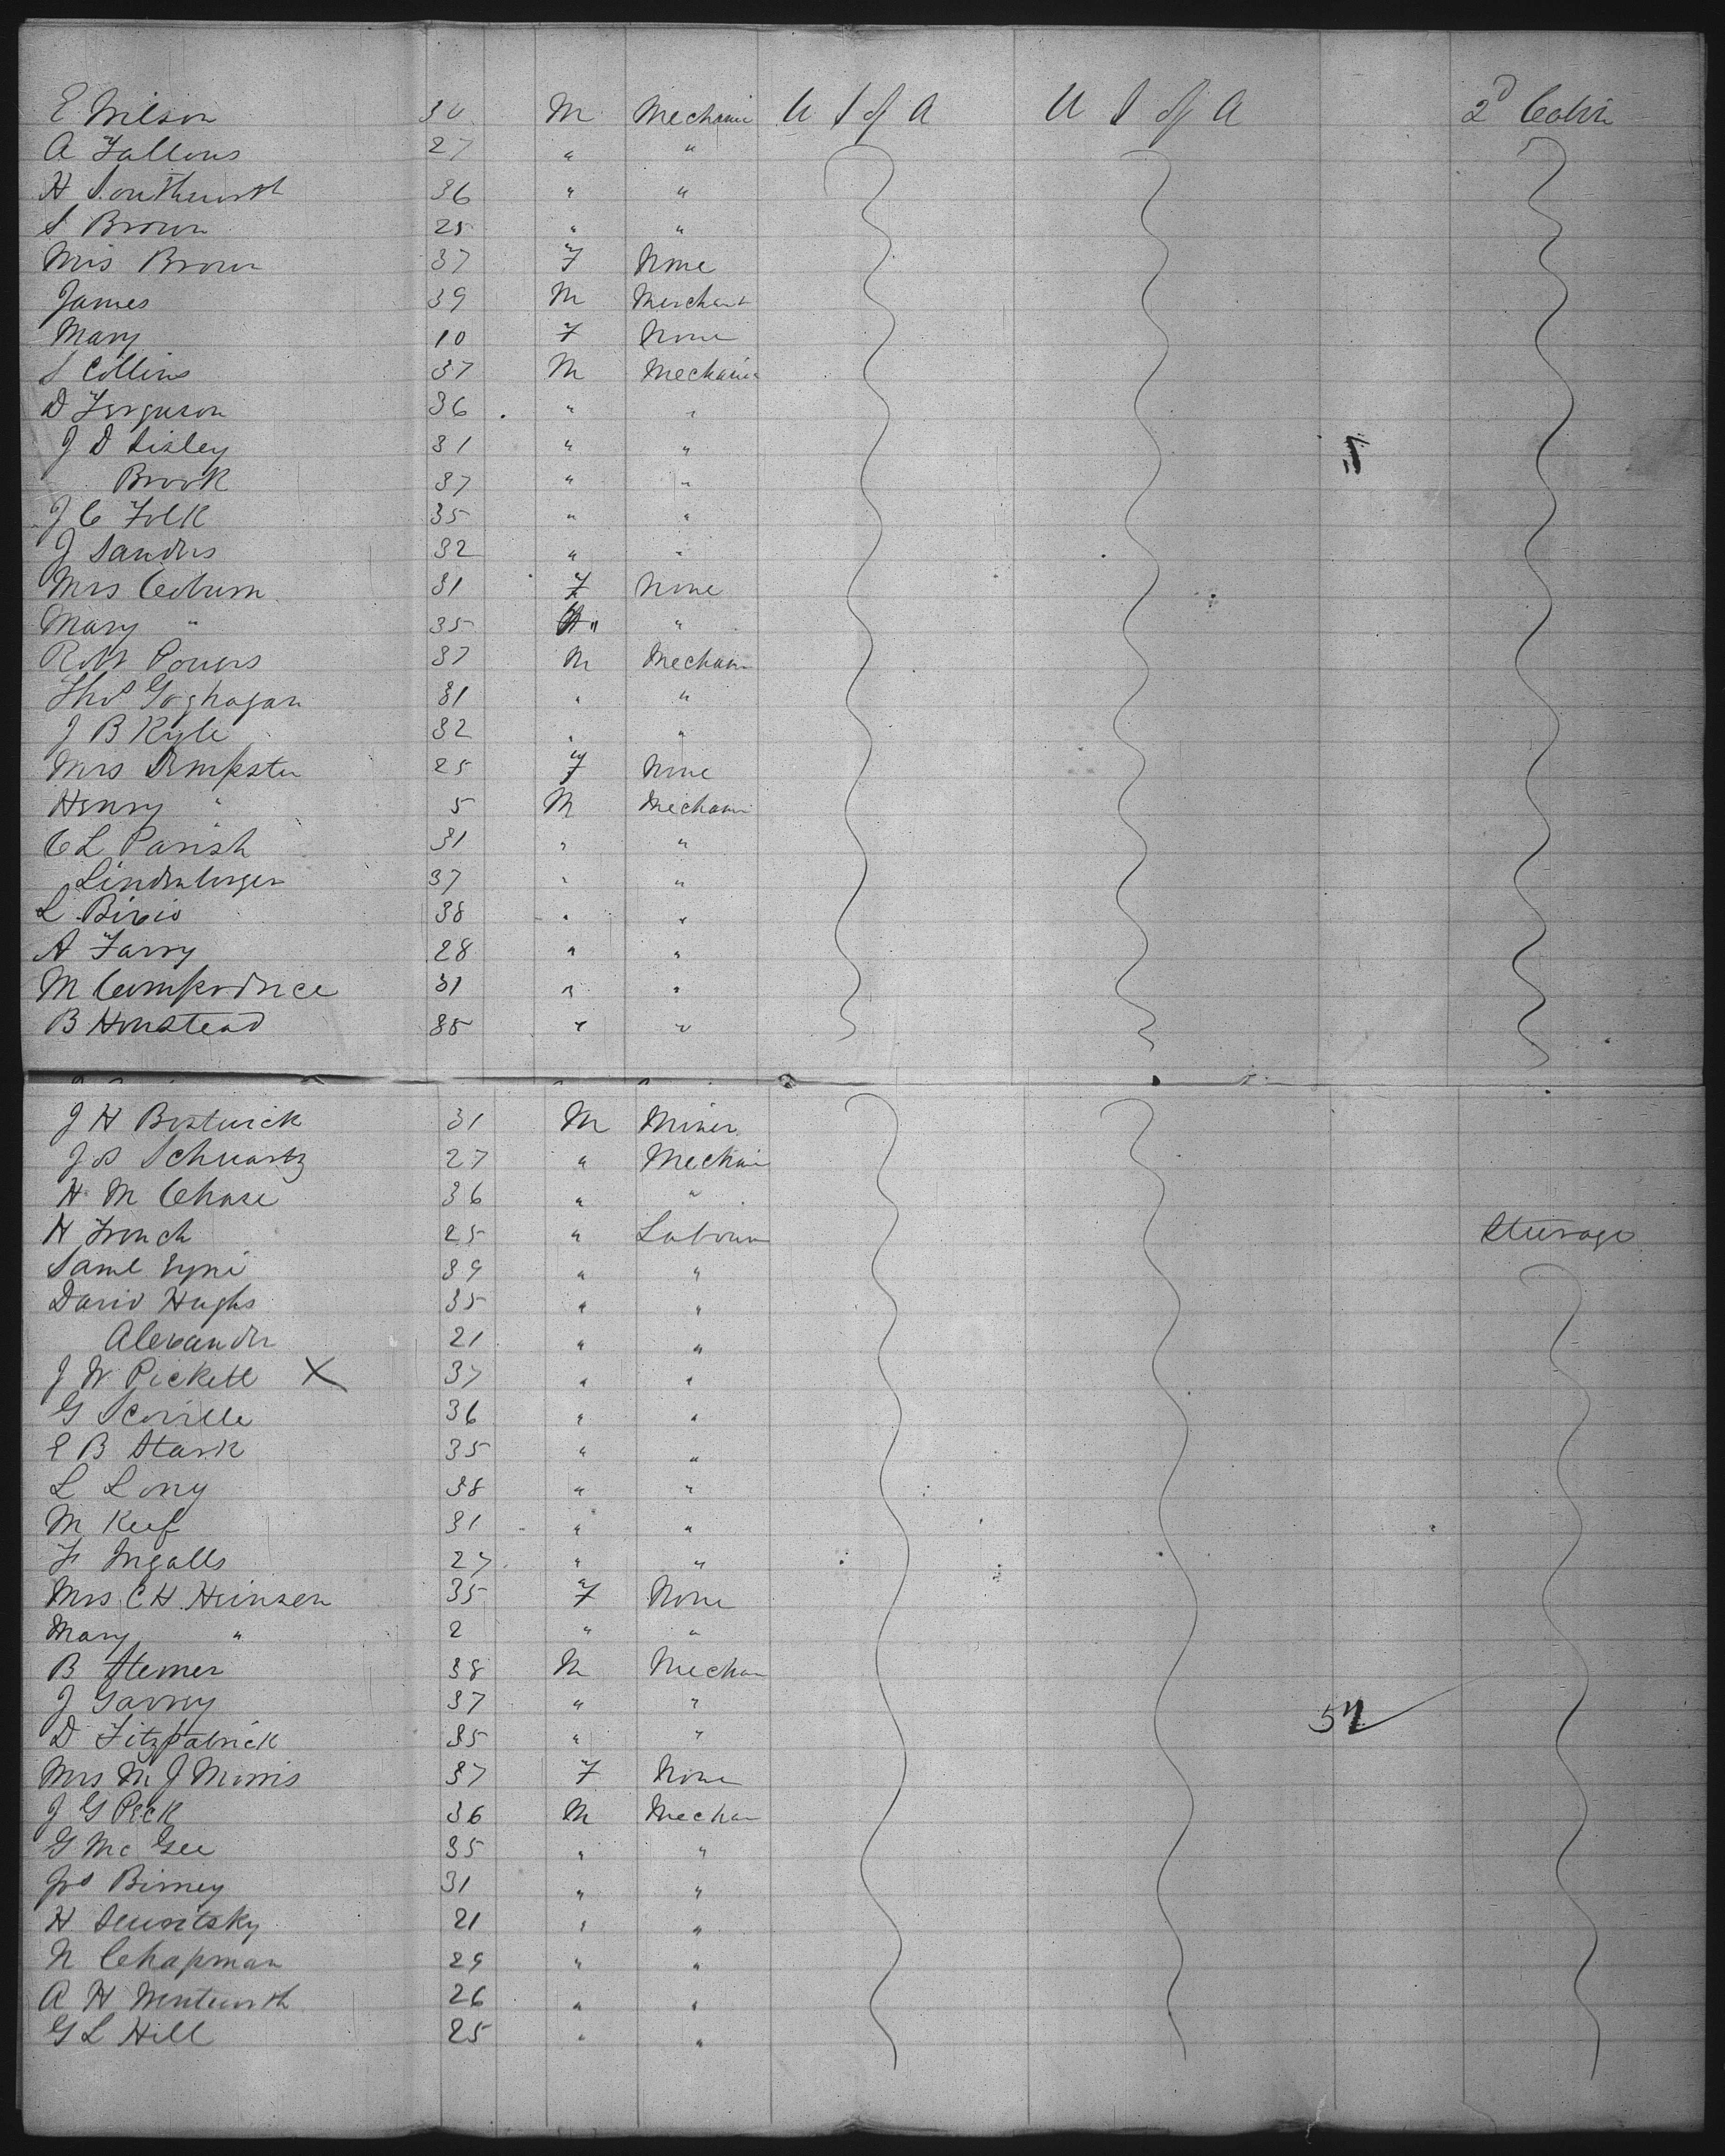 E Wilson 30 M Mechanic U S of A U S of A 2D Cabin
A Fallons 27 " "
H Southworth 36 " "
S Brown 25 " "
Mrs Brown 37 F None
James 39 M Merchant
Mary 10 F None
S Collins 37 M Mechanic
D Ferguson 36 " "
J D Sisley 31 " "
Brook 37 " "
J C Folk 35 " "
J Sanders 32 " "
Mrs Coburn 31 F None
Mary " 35 " "
Robt Powers 37 M Mechani
Thos Goghagan 31 " "
J B Kyle 32 " "
Mrs Dempster 25 F None
Henry " 5 M Mechani
C L Parish 31 " "
Lindenberger 37 " "
L 38 " "
A Farry 28 " "
M 31 " "
B Homstead 35 " "
J H Bostwick 31 M Miner
Jos Schwartz 27 " Mechani
H M Chase 36 " "
H French 25 " Labourer Steerage
Saml 39 " "
David Hughs 35 " "
Alexander 21 " "
J W Pickett X 37 " "
G Scoville 36 " "
E B Stark 35 " "
L Long 38 " "
M Keef 31 " "
F Ingalls 27 " "
Mrs C H Heinsen 35 F None
Mary " 2 " "
B Stemer 38 M Mechan
J Garvey 37 " " 52
D Fitzpatrick 35 " "
Mrs M J Morris 37 F None
J G Peck 36 M Mechan
G Mc Gee 35 " "
Jos Birney 31 " "
H 21 " "
N Chapman 29 " "
A H Wentworth 26 " "
G L Hill 25 " "